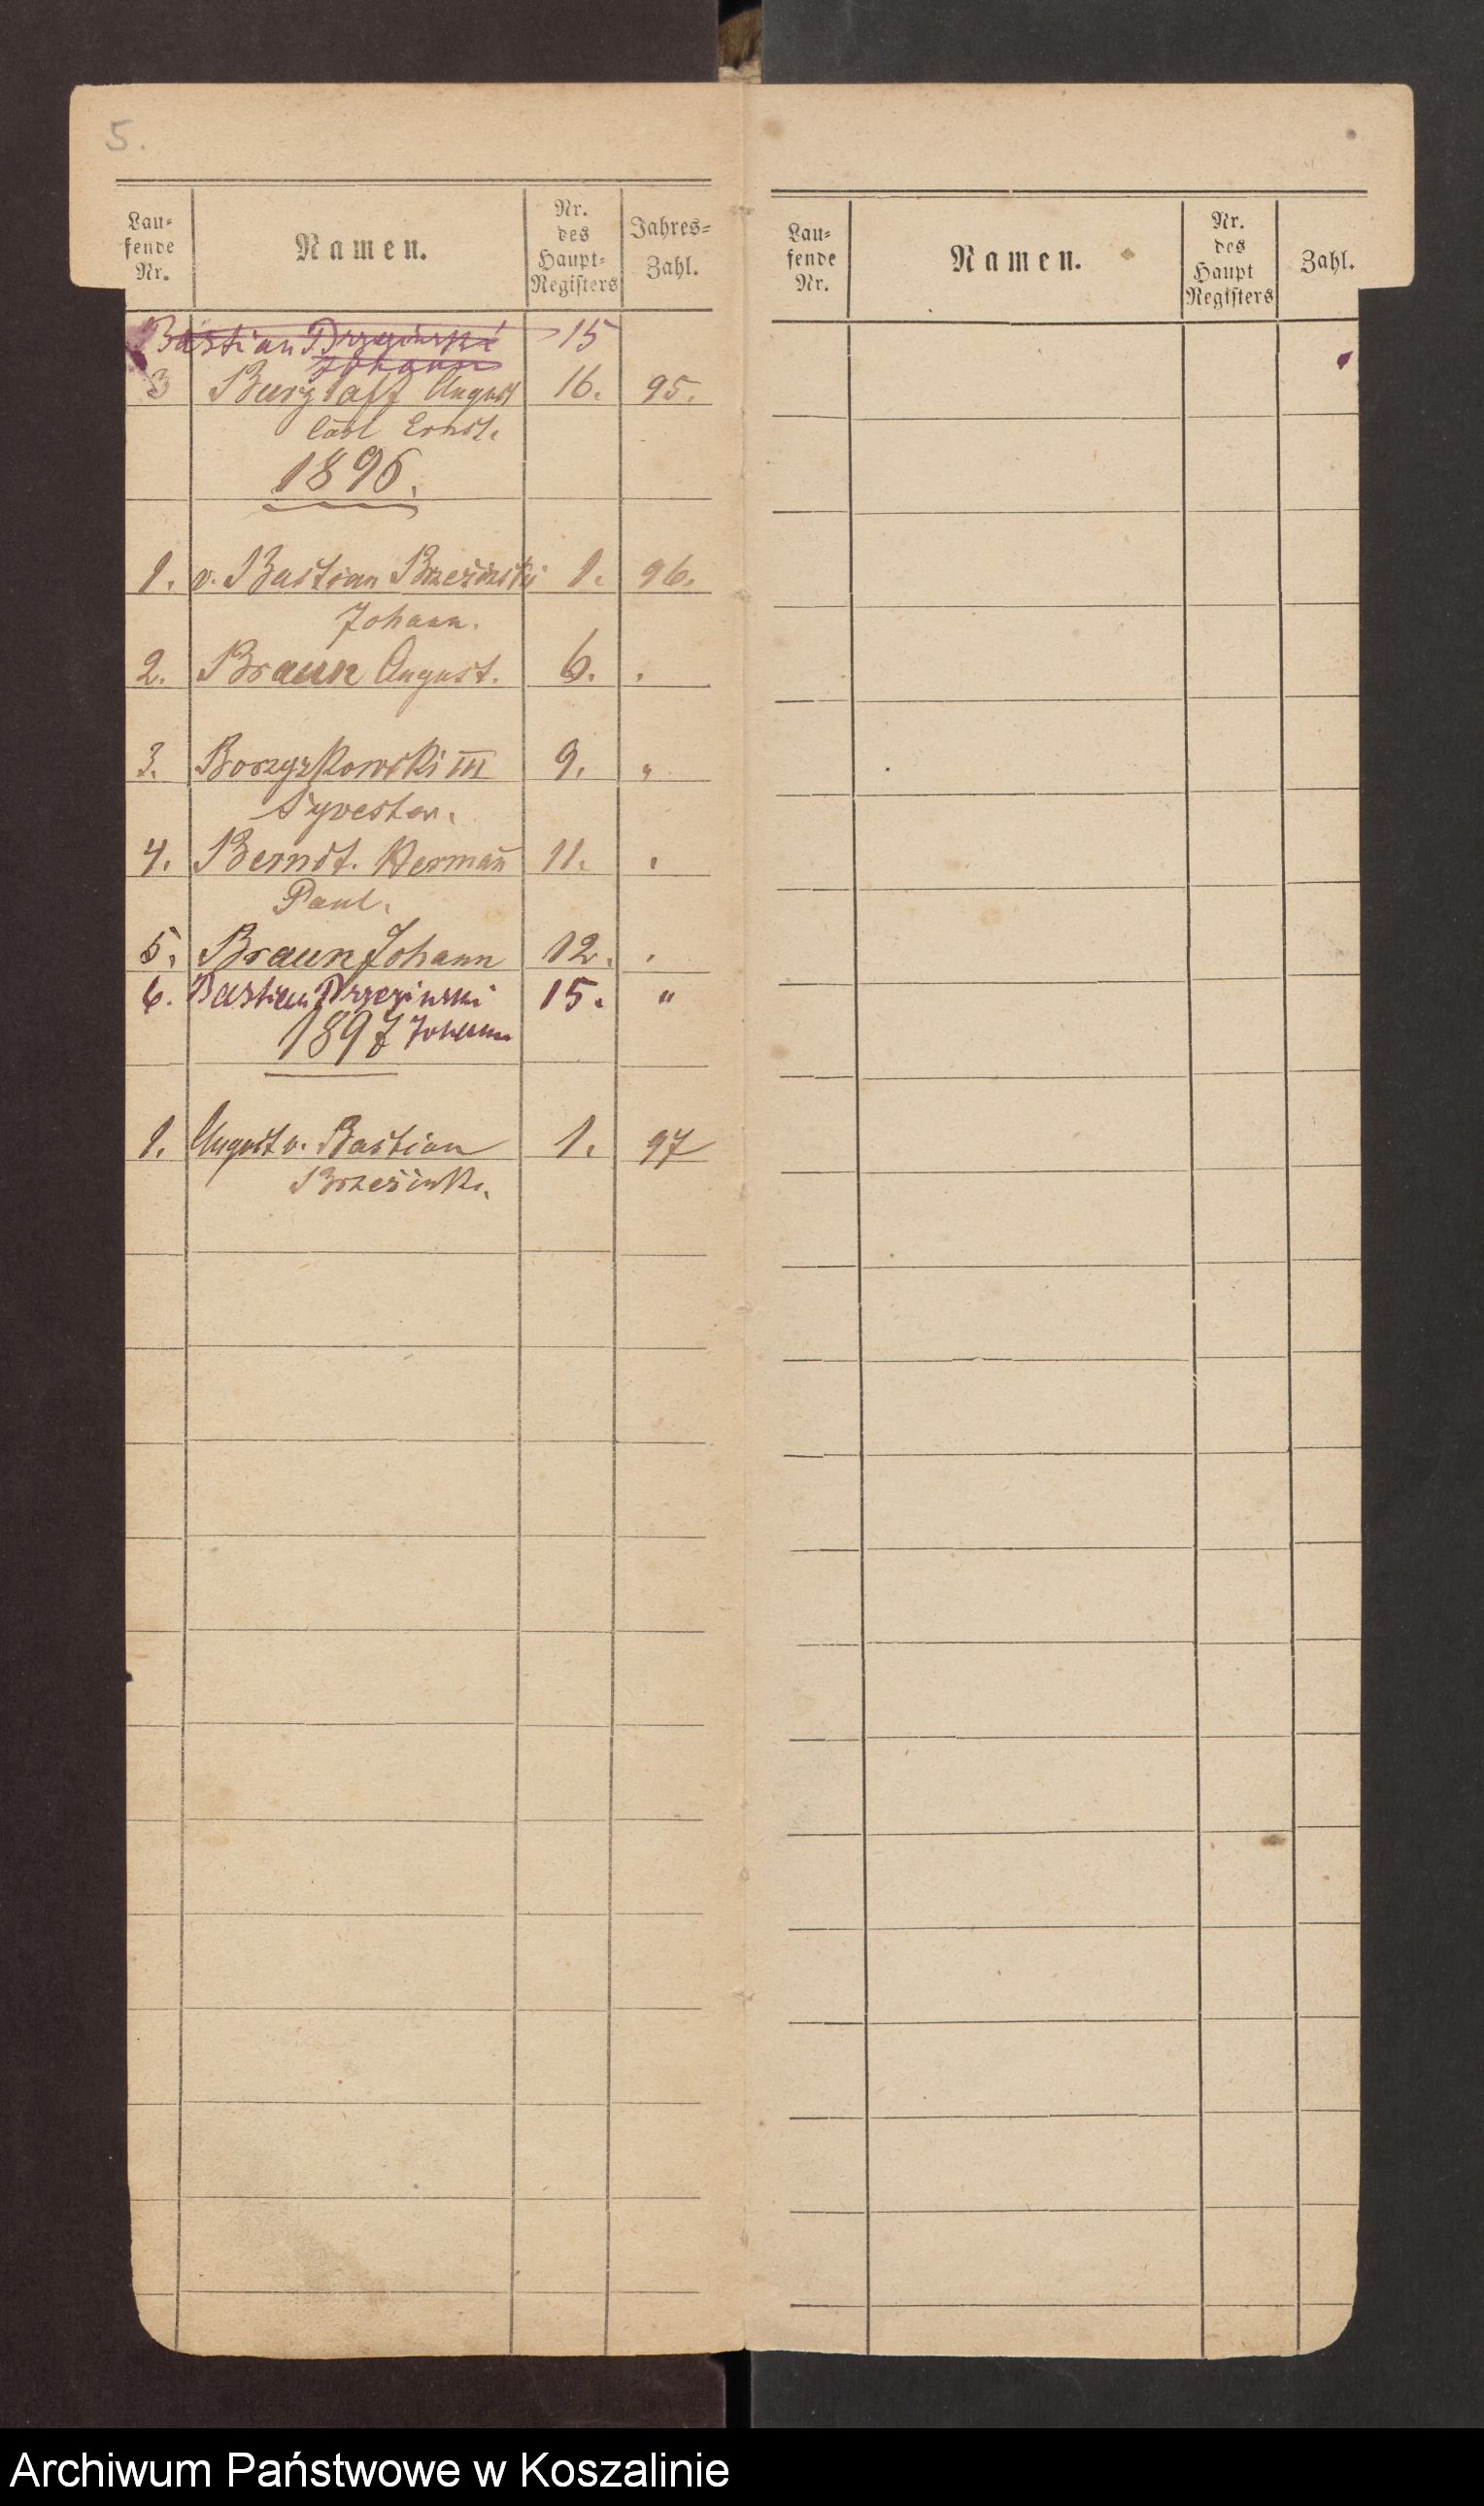 5.
Lau-
fende
Nr.
Namen.
Nr.
des
Haupt-
Registers
Jahres-
Zahl.
Bastian Brzezinski 15
Johann
3 Burglaff August 16. 95.
Carl Ernst.
1896.
1. v. Bastian Brzesinski 1. 96.
Johann.
2. Braun August. 6. .
3. Borzyzkowski III 9. "
Sywester.
4. Berndt. Hermañ 11. .
Paul.
5. Braun Johann 12. .
6. Bastian Brzezinski 15. "
1897 Johann
1. August v. Bastian 1. 97
Brzesinski.
Lau-
fende
Nr.
Namen.
Nr.
des
Haupt
Registers
Zahl.
Archiwum Państwowe w Koszalinie